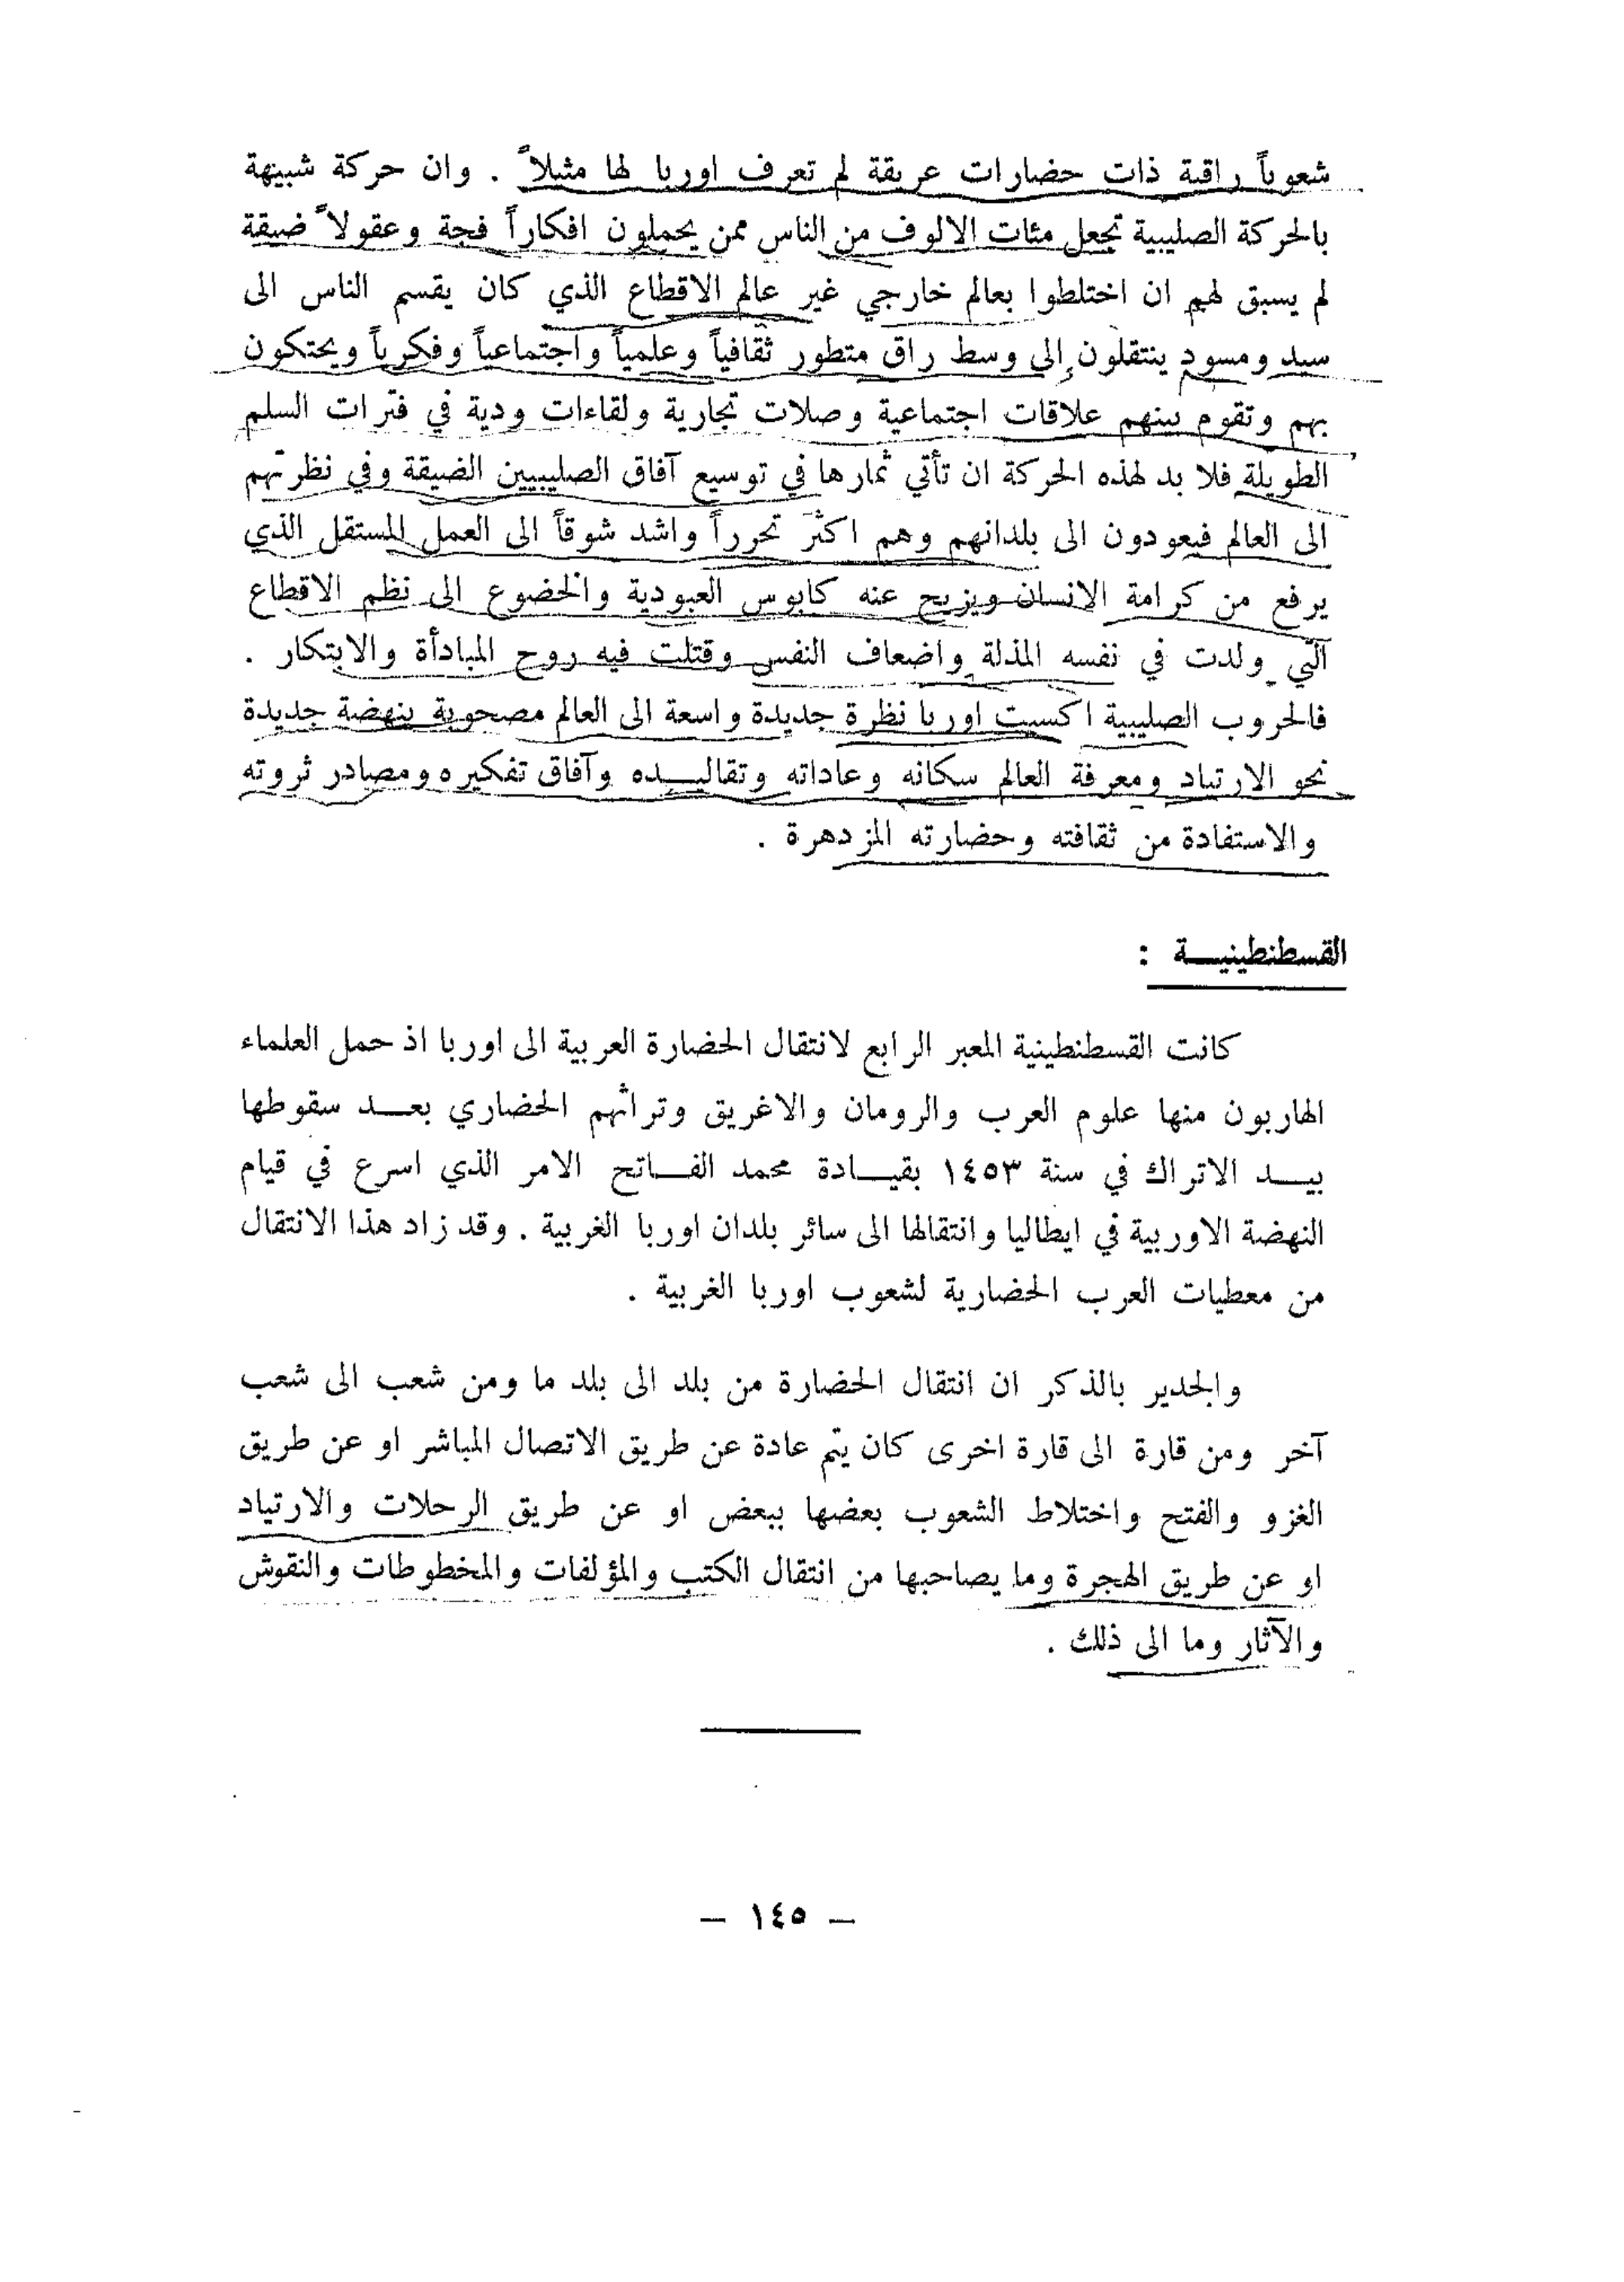 شعوباً راقية ذات حضارات عريقة لم تعرف اوربا لها مثيلاً . وان حركة شبيهة
بالحركة الصليبية تجعل مئات الالوف من الناس ممن يحملون افكاراً فجة وعقولاً ضيقة
لم يسبق لهم ان اختلطوا بعالم خارجي غير عالم الاقطاع الذي كان يقسم الناس الى
سيد ومسود ينتقلون إلى وسط راق متطور ثقافياً وعلمياً واجتماعياً وفكرياً ويحتكون
بهم وتقوم بينهم علاقات اجتماعية وصلات تجارية ولقاءات ودية في فترات السلم
الطويلة فلا بد لهذه الحركة ان تأتي ثمارها في توسيع آفاق الصليبيين الضيقة وفي نظرتهم
الى العالم فيعودون الى بلدانهم وهم اكثر تحرراً واشد شوقاً الى العمل المستقل الذي
يرفع من كرامة الانسان ويزيح عنه كابوس العبودية والخضوع الى نظم الاقطاع
التي ولدت في نفسه المذلة واضعاف النفس وقتلت فيه روح المبادأة والابتكار .
فالحروب الصليبية اكسبت اوربا نظرة جديدة واسعة الى العالم مصحوبة بنهضة جديدة
نحو الارتياد ومعرفة العالم سكانه وعاداته وتقاليـــده وآفاق تفكيره ومصادر ثروته
والاستفادة من ثقافته وحضارته المزدهرة .
القسطنطينيـــة :
كانت القسطنطينية المعبر الرابع لانتقال الحضارة العربية الى اوربا اذ حمل العلماء
الهاربون منها علوم العرب والرومان والاغريق وتراثهم الحضاري بعـــد سقوطها
بيـــد الاتراك في سنة ١٤٥٣ بقيـــادة محمد الفـــاتح الامر الذي اسرع في قيام
النهضة الاوربية في ايطاليا وانتقالها الى سائر بلدان اوربا الغربية . وقد زاد هذا الانتقال
من معطيات العرب الحضارية لشعوب اوربا الغربية .
والجدير بالذكر ان انتقال الحضارة من بلد الى بلد ما ومن شعب الى شعب
آخر ومن قارة الى قارة اخرى كان يتم عادة عن طريق الاتصال المباشر او عن طريق
الغزو والفتح واختلاط الشعوب بعضها ببعض او عن طريق الرحلات والارتياد
او عن طريق الهجرة وما يصاحبها من انتقال الكتب والمؤلفات والمخطوطات والنقوش
والآثار وما الى ذلك .
— ١٤٥ —